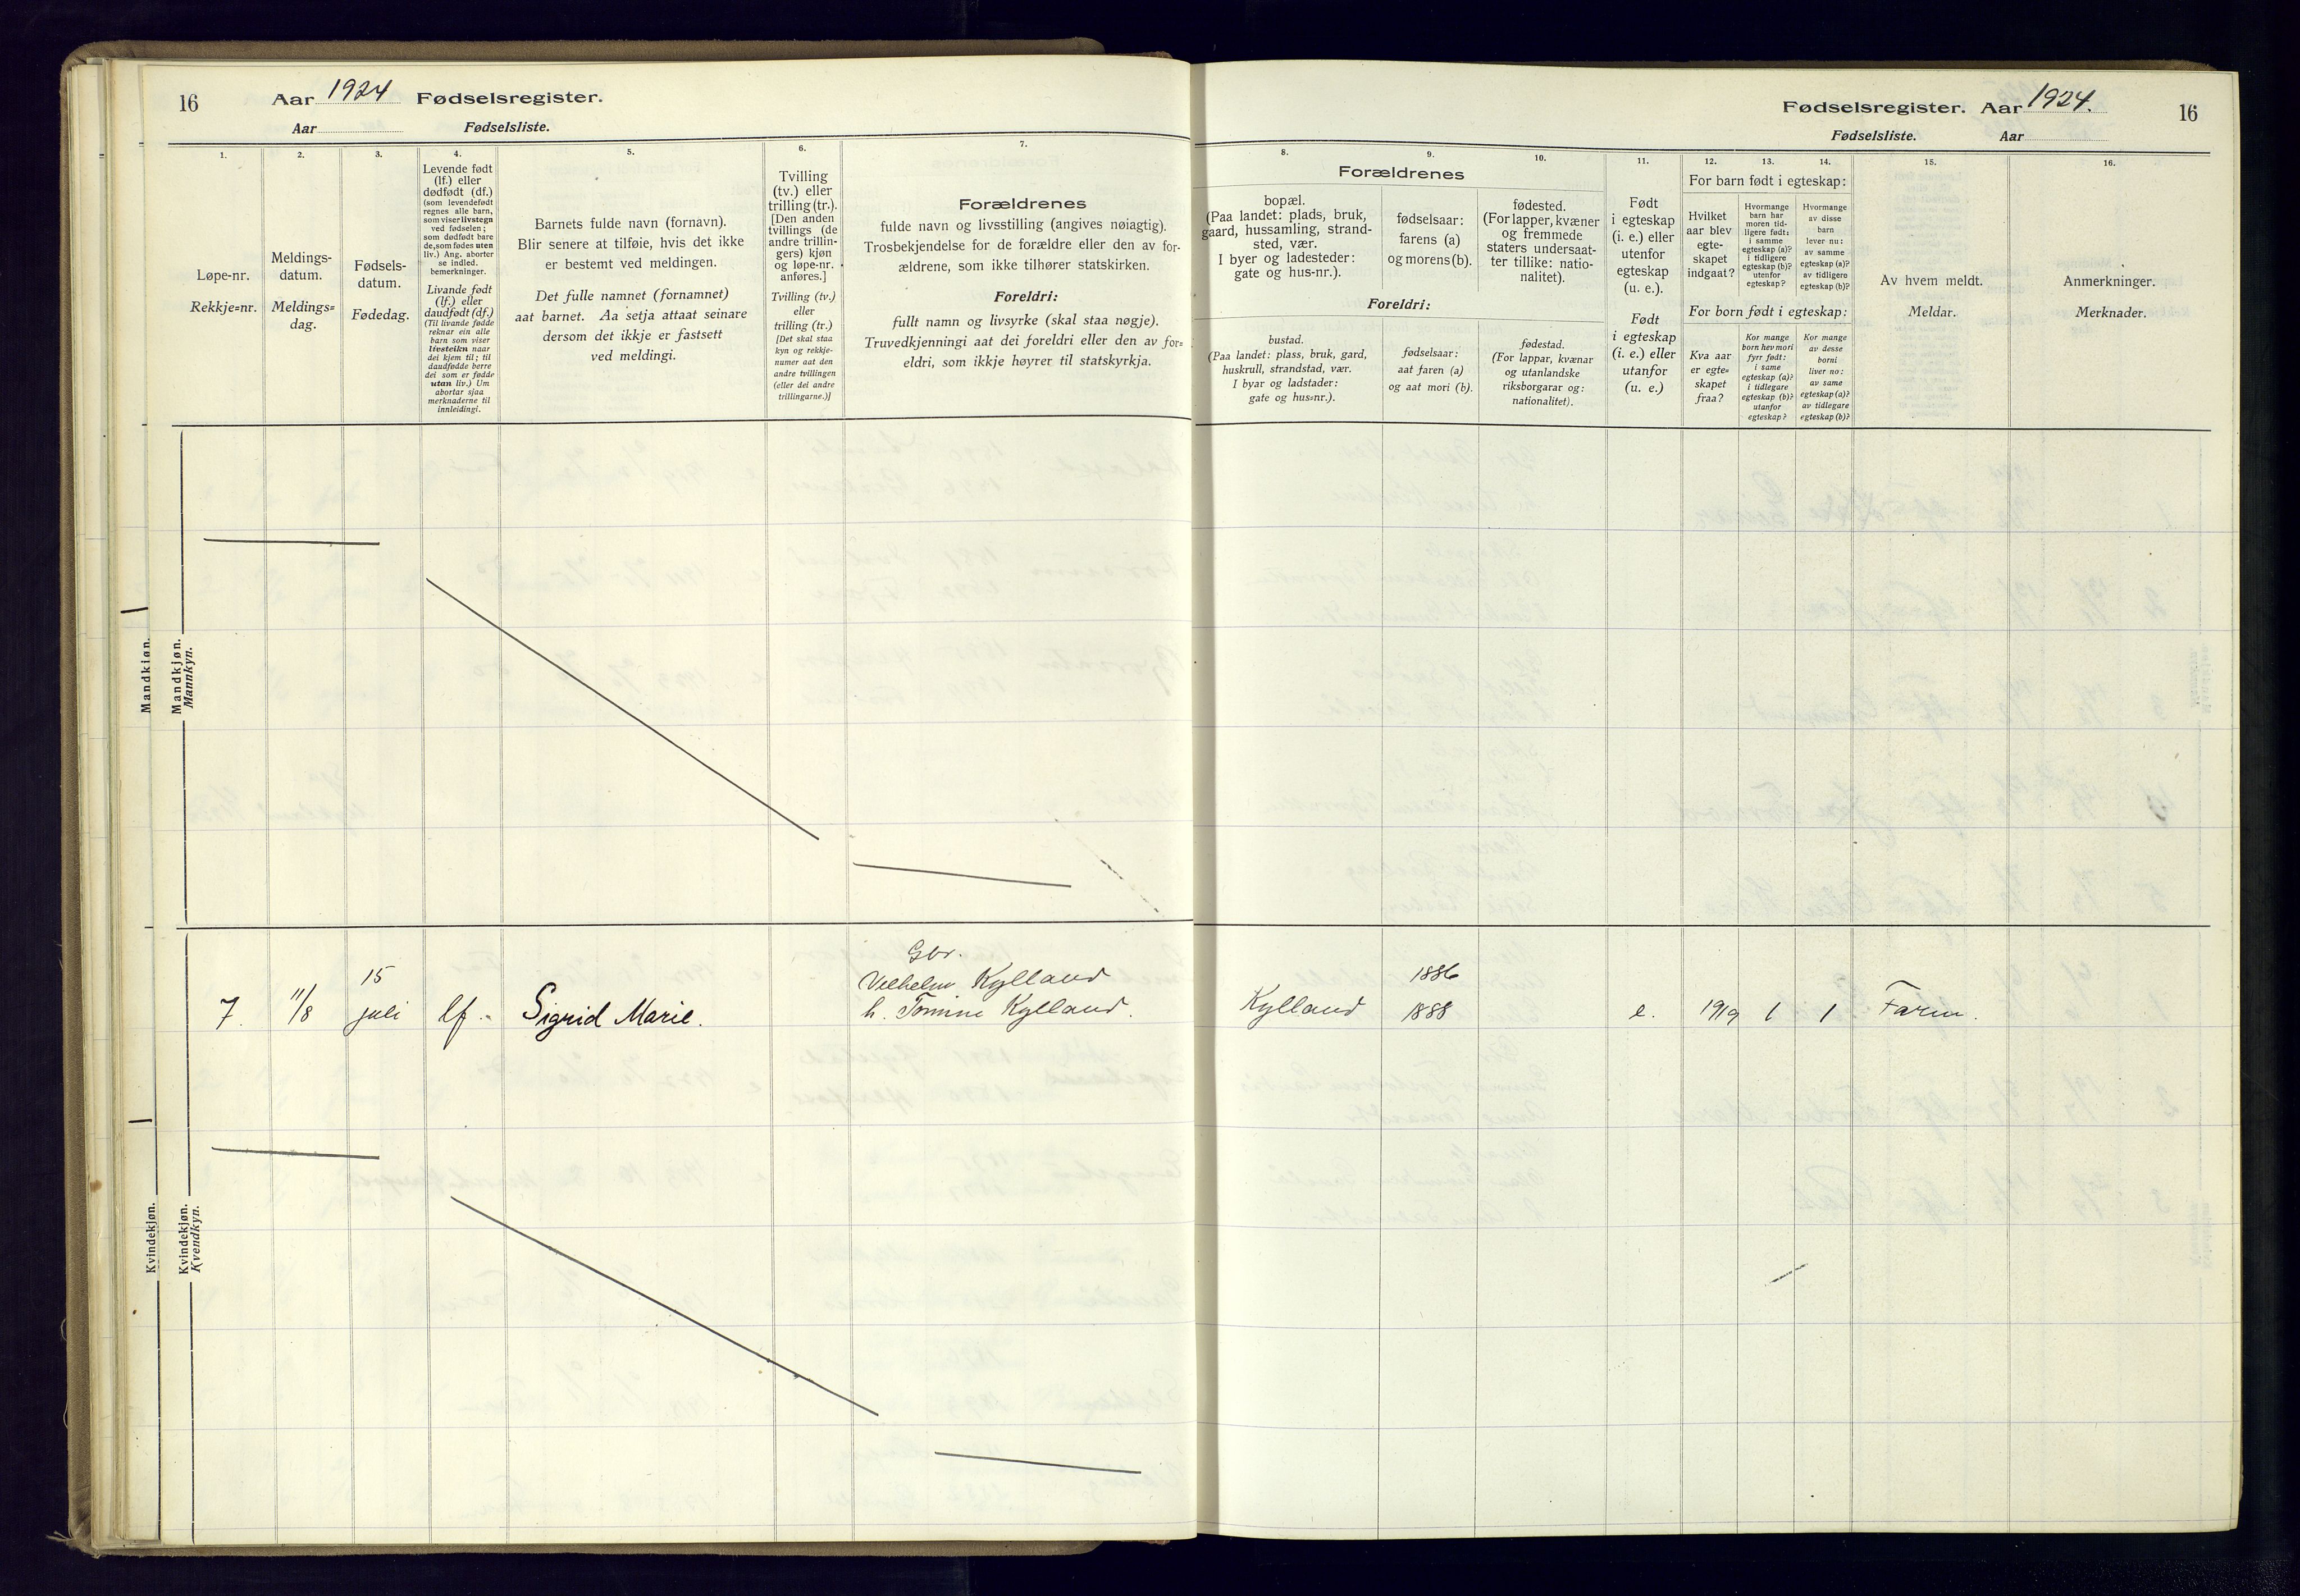 16
Aar 1924 Fødselsregister.
Aar Fødselsliste.
Fødselsregister. Aar 1924. 16
Fødselsliste. Aar
1.
Løpe-nr.
Rekkje=nr.
2.
Meldings-
datum.
Meldings=
dag.
3.
Fødsels-
datum.
Fødedag.
4.
Levende født
(lf.) eller
dødfødt (df.)
(som levendefødt
regnes alle barn,
som viser livstegn
ved fødselen;
som dødfødt bare
de, som fødes uten
liv.) Ang. aborter
se indled.
bemerkninger.
Livande født
(lf.) eller
daudfødt (df.)
(Til livande fødde
reknar ein alle
barn som viser
livsteikn naar
dei kjem til; til
daudfødde berre
dei som er fødde
utan liv.) Um
abortar sjaa
merknaderne til
innleidingi.
5.
Barnets fulde navn (fornavn).
Blir senere at tilføie, hvis det ikke
er bestemt ved meldingen.
Det fulle namnet (fornamnet)
aat barnet. Aa setja attaat seinare
dersom det ikkje er fastsett
ved meldingi.
6.
Tvilling
(tv.) eller
trilling (tr.).
[Den anden
tvillings (de
andre trillin-
gers) kjøn
og løpe-nr.
anføres.]
Tvilling (tv.)
eller
trilling (tr.)
[Det skal staa
kyn og rekkje-
numer aat den
andre tvillingen
(eller dei andre
trillingarne.)]
7.
Forældrenes
fulde navn og livsstilling (angives nøiagtig).
Trosbekjendelse for de forældre eller den av for-
ældrene, som ikke tilhører statskirken.
Foreldri:
fullt namn og livsyrke (skal staa nøgje).
Truvedkjenningi aat dei foreldri eller den av for=
eldri, som ikkje høyrer til statskyrkja.
Forældrenes
8.
bopæl.
(Paa landet: plads, bruk,
gaard, hussamling, strand-
sted, vær.
I byer og ladesteder:
gate og hus-nr.).
9.
fødselsaar:
farens (a)
og morens (b).
10.
fødested.
(For lapper, kvæner
og fremmede
staters undersaat-
ter tillike: natio-
nalitet).
Foreldri:
bustad.
(Paa landet: plass, bruk, gard,
huskrull, strandstad, vær.
I byar og ladstader:
gate og hus=nr.).
fødselsaar:
aat faren (a)
og aat mori (b).
fødestad.
(For lappar, kvænar
og utanlandske
riksborgarar og:
nationalitet).
11.
Født
i egteskap
(i. e.) eller
utenfor
egteskap
(u. e.).
Født
i egteskap
(i. e.) eller
utanfor
(u. e.)
12. 13. 14.
For barn født i egteskap:
Hvilket
aar blev
egte-
skapet
indgaat?
Hvormange
barn har
moren tid-
ligere født:
i samme
egteskap (a)?
i tidligere
egteskap (b)?
utenfor
egteskap?
Hvormange
av disse
barn
lever nu:
av samme
egteskap (a)?
av tidligere
egteskap (b)?
For born født i egteskap:
Kva aar
er egte=
skapet
fraa?
Kor mange
born hev mori
fyrr født:
i same
egteskap (a)?
i tidlegare
egteskap (b)?
utanfor
egteskap?
Kor mange
av desse
borni
liver no:
av same
egteskap (a)?
av tidlegare
egteskap (b)?
15.
Av hvem meldt.
Meldar.
16.
Anmerkninger.
Merknader.
Mandkjøn.
Mandkjøn.
Mannkyn.
Kvindekjøn.
Kvindekjøn.
Kvendkyn.
7. 11/8 15 juli lf. Sigrid Marie.
Gbr.
Vilhelm Kylland
h. Tomine Kylland.
Kylland
1886
1888
e. 1919 1 1 Faren.